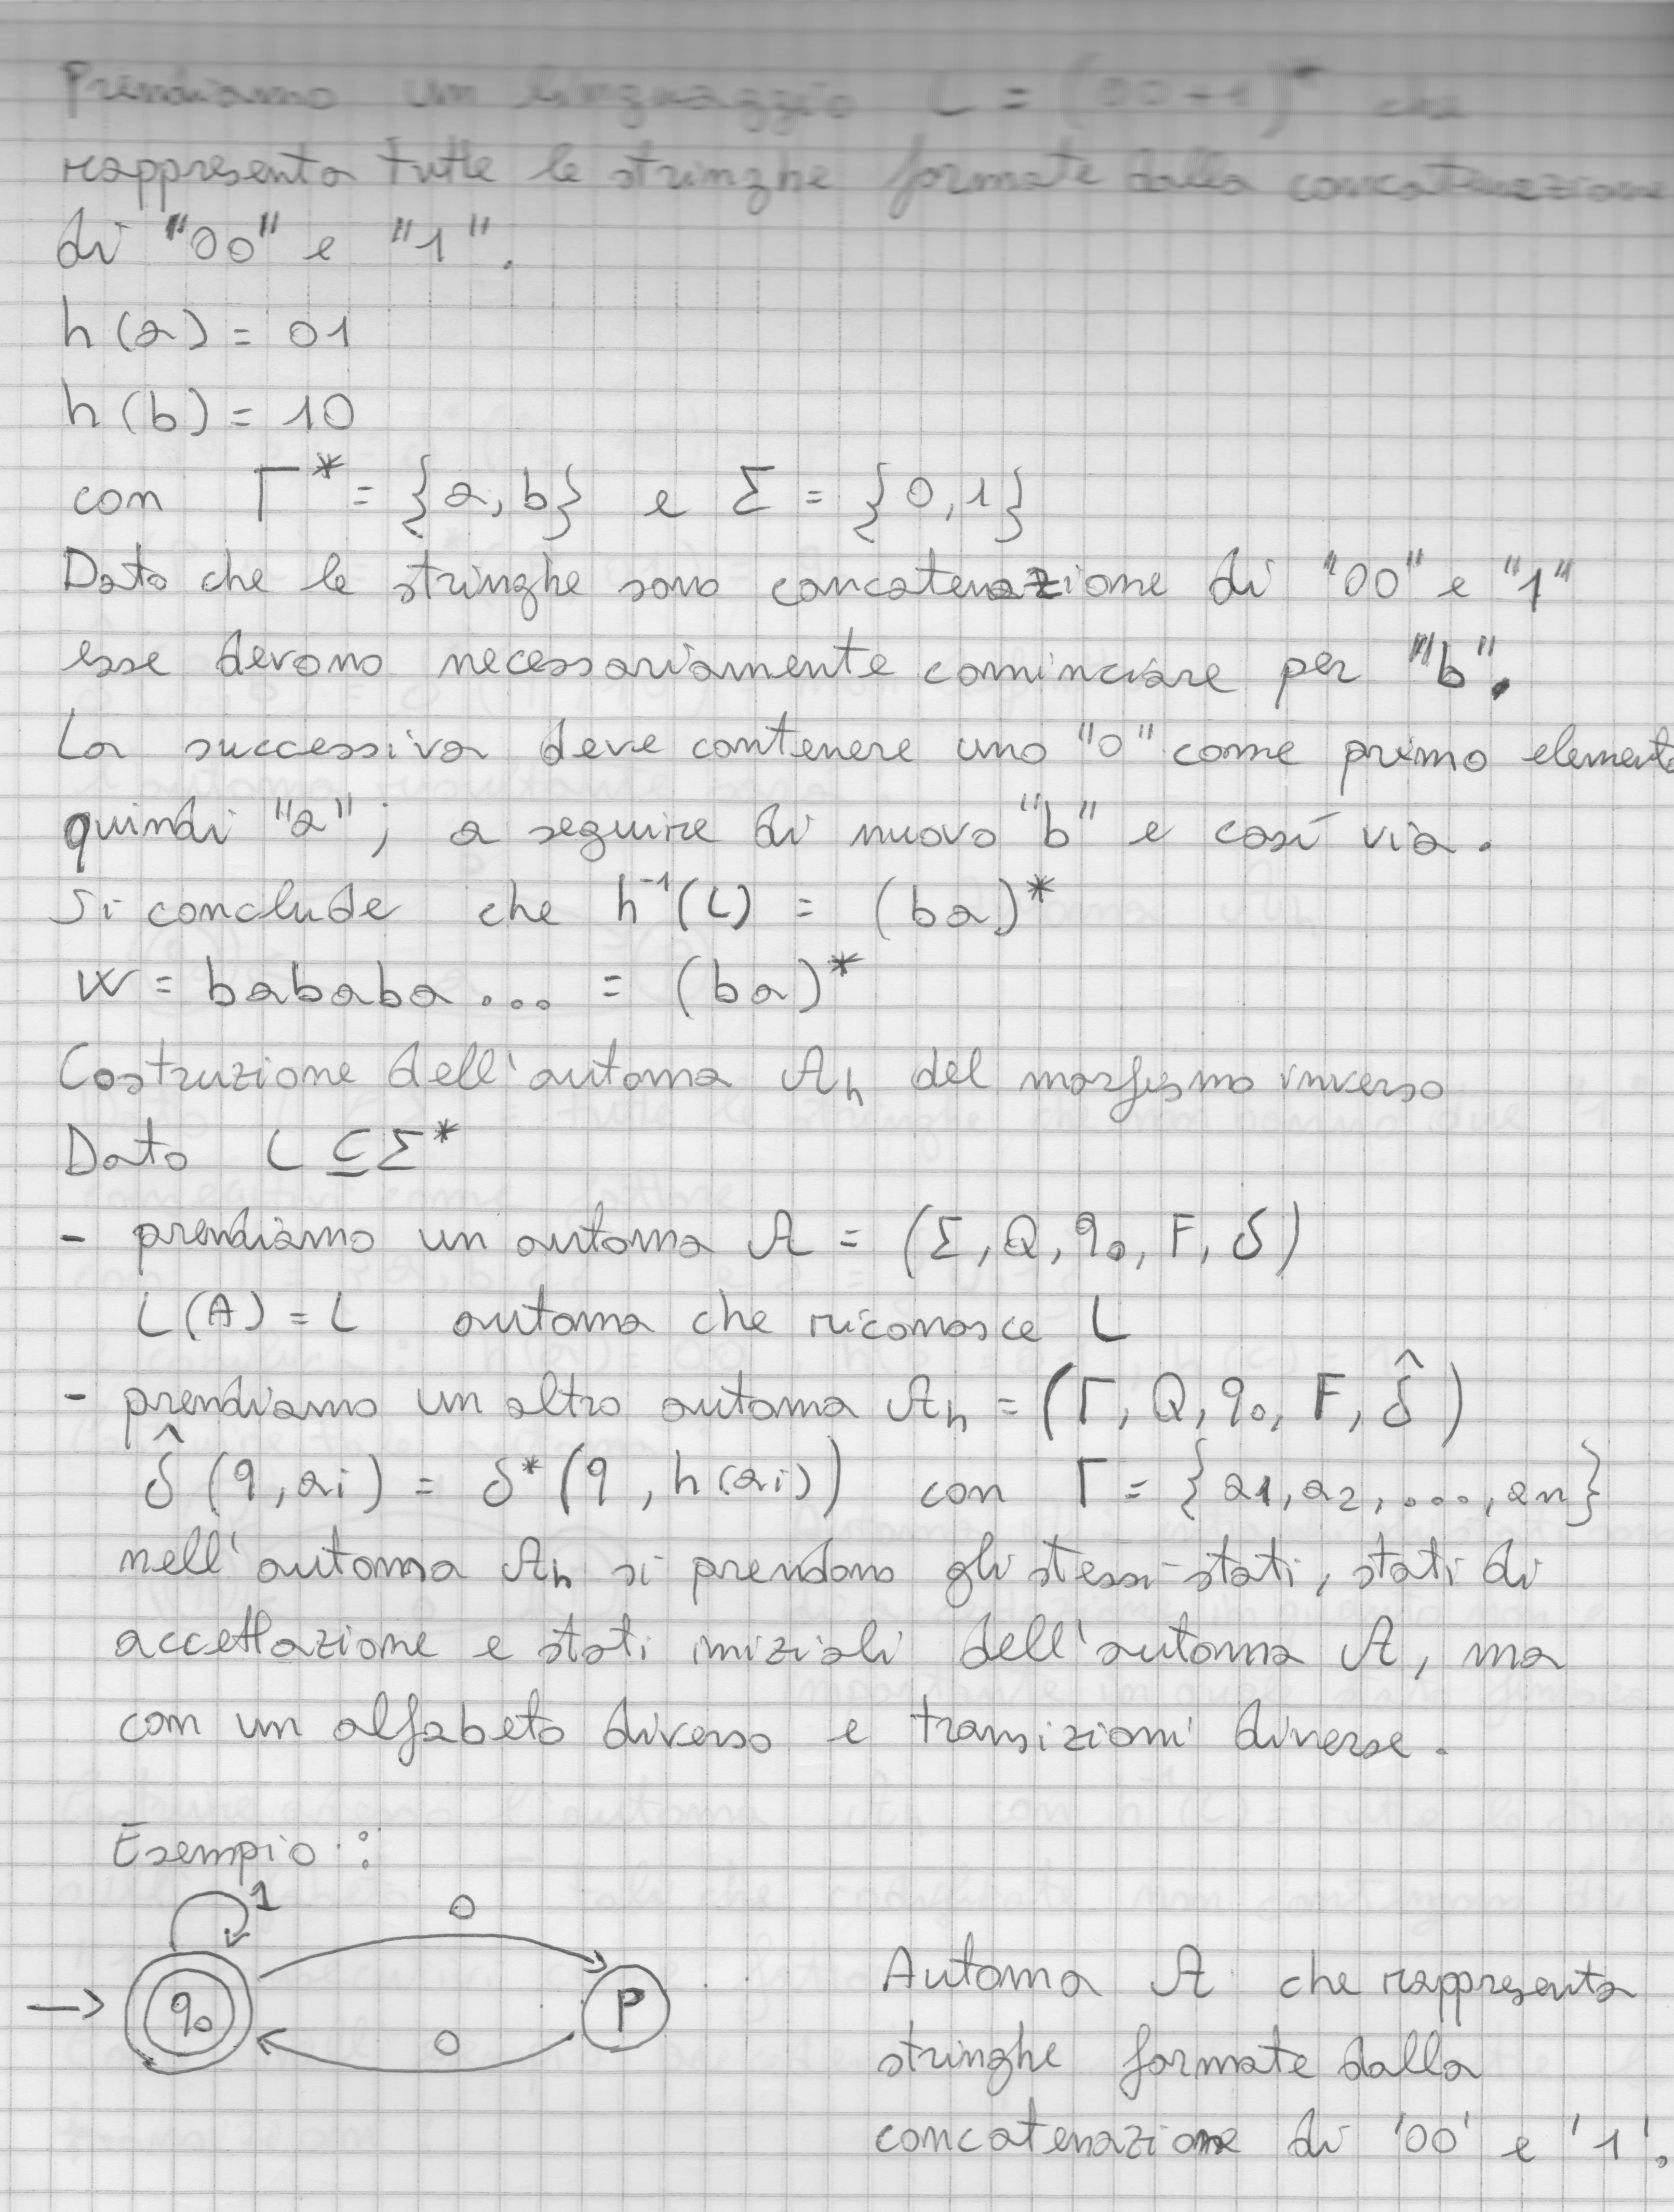 Prendiamo un linguaggio L = (00+1)* che
rappresenta tutte le stringhe formate dalla concatenazione
di "00" e "1".
h(a) = 01
h(b) = 10
con Γ* = {a, b} e Σ = {0, 1}
Dato che le stringhe sono concatenazione di "00" e "1"
esse devono necessariamente cominciare per "b".
La successiva deve contenere uno "0" come primo elemento
quindi "a"; a seguire di nuovo "b" e così via.
Si conclude che h⁻¹(L) = (ba)*
W = bababa... = (ba)*
Costruzione dell'automa Ah del morfismo inverso
Dato L ⊆ Σ*
- prendiamo un automa A = (Σ, Q, q₀, F, δ)
L(A) = L automa che riconosce L
- prendiamo un altro automa Ah = (Γ, Q, q₀, F, δ̂)
δ̂(q, ai) = δ*(q, h(ai)) con Γ = {a1, a2, ..., an}
nell'automa Ah si prendono gli stessi stati, stati di
accettazione e stati iniziali dell'automa A, ma
con un alfabeto diverso e transizioni diverse.
Esempio:
1
0
q₀
P
0
Automa A che rappresenta
stringhe formate dalla
concatenazione di '00' e '1'.